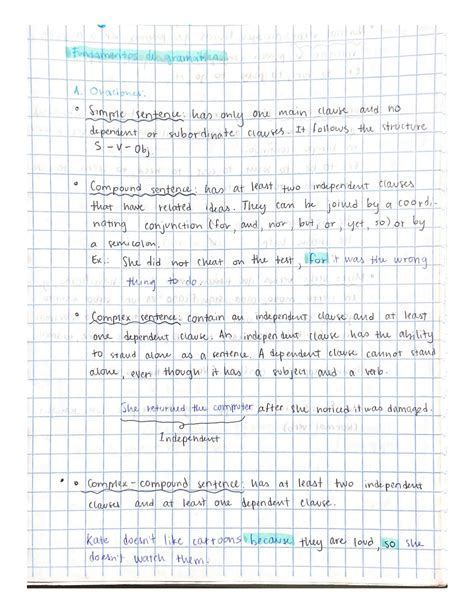 Fundamentos de gramática.
A. Oraciones.
• Simple sentence: has only one main clause and no
dependent or subordinate clauses. It follows the structure
S - V - Obj
• Compound sentence: has at least two independent clauses
that have related ideas. They can be joined by a coordi-
nating conjunction (for, and, nor, but, or, yet, so) or by
a semicolon.
Ex.: She did not cheat on the test, for it was the wrong
thing to do.
• Complex sentence: contain an independent clause and at least
one dependent clause. An independent clause has the ability
to stand alone as a sentence. A dependent clause cannot stand
alone, even though it has a subject and a verb.
She returned the computer after she noticed it was damaged.
Independent
• Complex-compound sentence: has at least two independent
clauses and at least one dependent clause.
Kate doesn't like cartoons because they are loud, so she
doesn't watch them.